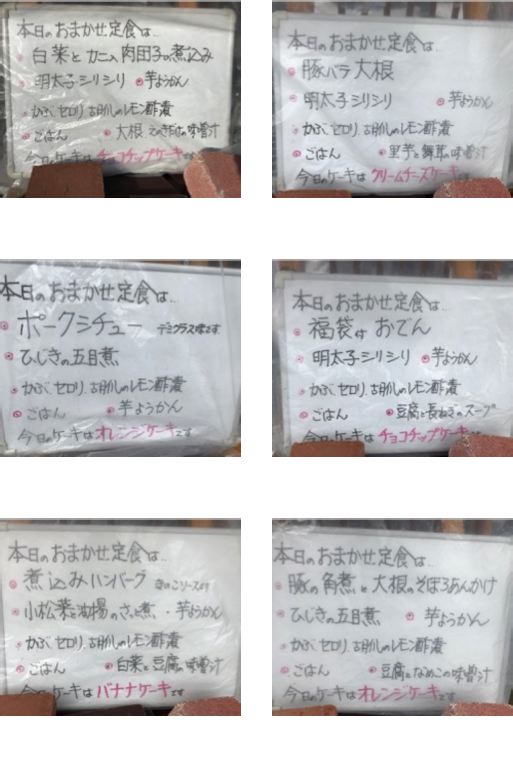 本日のおまかせ定食は…
白菜とカニ入肉団子の煮込み
明太子シリシリ ・芋ようかん
かぶ、セロリ、胡瓜のレモン酢漬
ごはん ・大根 えのき の味噌汁
今日のケーキはチョコチップケーキです
本日のおまかせ定食は…
豚バラ大根
明太子シリシリ ・芋ようかん
かぶ、セロリ、胡瓜のレモン酢漬
ごはん ・里芋と舞茸の味噌汁
今日のケーキはクリームチーズケーキです
本日のおまかせ定食は…
ポークシチュー デミグラス味です
ひじきの五目煮
かぶ、セロリ、胡瓜のレモン酢漬
ごはん ・芋ようかん
今日のケーキはオレンジケーキです
本日のおまかせ定食は…
福袋付おでん
明太子シリシリ ・芋ようかん
かぶ、セロリ、胡瓜のレモン酢漬
ごはん ・豆腐と長ねぎのスープ
今日のケーキはチョコチップケーキです
本日のおまかせ定食は…
煮込みハンバーグ きのこソースです
小松菜と油揚のさっと煮 ・芋ようかん
かぶ、セロリ、胡瓜のレモン酢漬
ごはん ・白菜と豆腐の味噌汁
今日のケーキはバナナケーキです
本日のおまかせ定食は…
豚の角煮と大根のそぼろあんかけ
ひじきの五目煮 ・芋ようかん
かぶ、セロリ、胡瓜のレモン酢漬
ごはん ・豆腐となめこの味噌汁
今日のケーキはオレンジケーキです